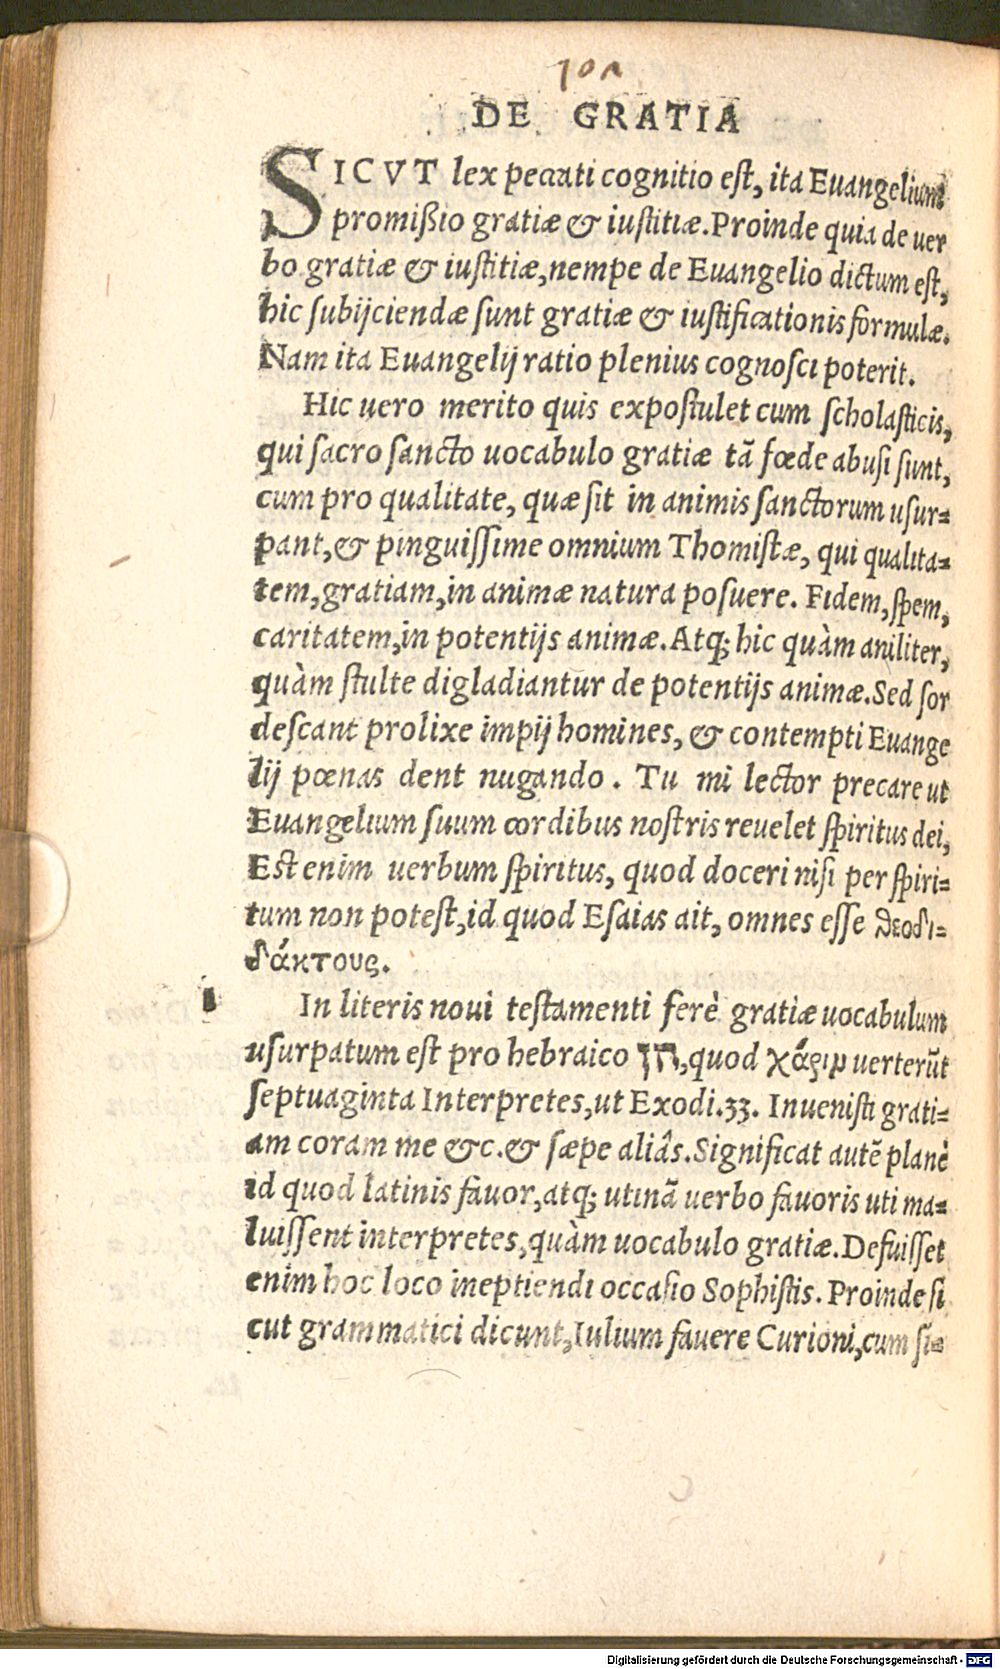 101
DE GRATIA
SICVT lex peccati cognitio est, ita Euangelium
promißio gratiæ & iustitiæ. Proinde quia de uer
bo gratiæ & iustitiæ, nempe de Euangelio dictum est,
hic subijciendæ sunt gratiæ & iustificationis formulæ.
Nam ita Euangelij ratio plenius cognosci poterit.
Hic uero merito quis expostulet cum scholasticis,
qui sacro sancto uocabulo gratiæ tã fœde abusi sunt,
cum pro qualitate, quæ sit in animis sanctorum usur=
pant, & pinguissime omnium Thomistæ, qui qualita=
tem, gratiam, in animæ natura posuere. Fidem, spem,
caritatem, in potentijs animæ. Atq; hic quàm aniliter,
quàm stulte digladiantur de potentijs animæ. Sed sor
descant prolixe impij homines, & contempti Euange
lij pœnas dent nugando. Tu mi lector precare ut
Euangelium suum cordibus nostris reuelet spiritus dei,
Est enim uerbum spiritus, quod doceri nisi per spiri=
tum non potest, id quod Esaias ait, omnes esse θεοδι=
δάκτους.
In literis noui testamenti ferè gratiæ uocabulum
usurpatum est pro hebraico חן, quod χάριν uerterũt
septuaginta Interpretes, ut Exodi. 33. Inuenisti grati=
am coram me &c. & sæpe aliâs. Significat autẽ planè
id quod latinis fauor, atq; utinã uerbo fauoris uti ma=
luissent interpretes, quàm uocabulo gratiæ. Defuisset
enim hoc loco ineptiendi occasio Sophistis. Proinde si
cut grammatici dicunt, Iulium fauere Curioni, cum si=
Digitalisierung gefördert durch die Deutsche Forschungsgemeinschaft - DFG